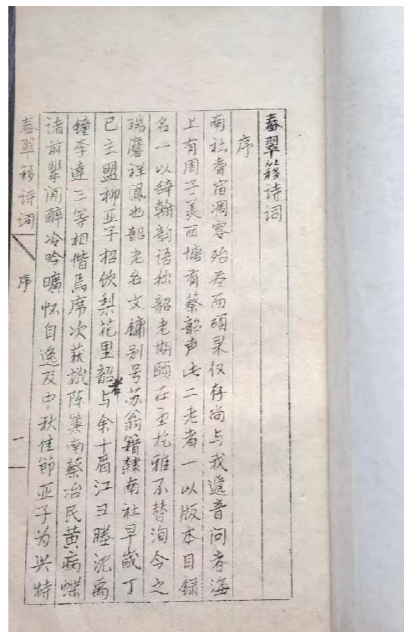 春翠簃诗词
序
南社耆宿凋零殆尽而硕果仅存尚与我递音问者海
上有周子美西塘有蔡韶声此二老者一以版本目录
名一以辞翰韵语称韶老期颐在望抗雅不替洵今之
瑞麐祥凤也韶老名文镛别号苏翁籍隶南社早岁丁
巳主盟柳亚子招饮梨花里韶老与余十眉江雪塍沈禹
钟李达三等相偕焉席次获识陈巢南蔡冶民黄病蝶
诸前辈酒酣冷吟旷怀自逸及中秋佳節亚子为兴特
春翠簃诗词
序
一